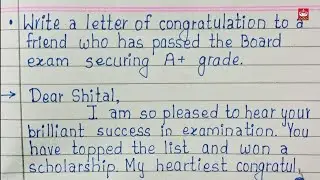 • Write a letter of congratulation to a
friend who has passed the Board
exam securing A+ grade.
→ Dear Shital,
I am so pleased to hear your
brilliant success in examination. You
have topped the list and won a
scholarship. My heartiest congratul.